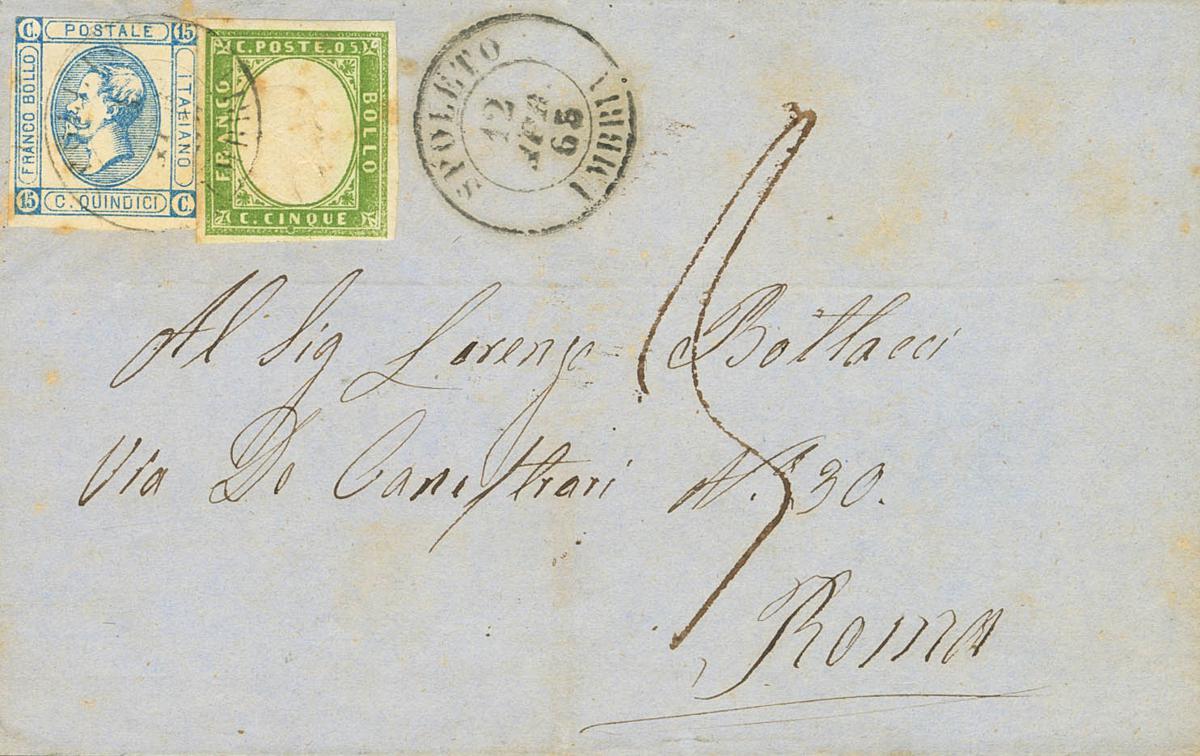 C. POSTALE 15
FRANCO BOLLO
ITALIANO
15 C. QUINDICI C.
C. POSTE. 05
FRANCO
BOLLO
C. CINQUE
SPOLETO
12
65
UMBRIA
Al Sig Lorenzo Bottacci
Via De Canestrari N. 30.
Roma